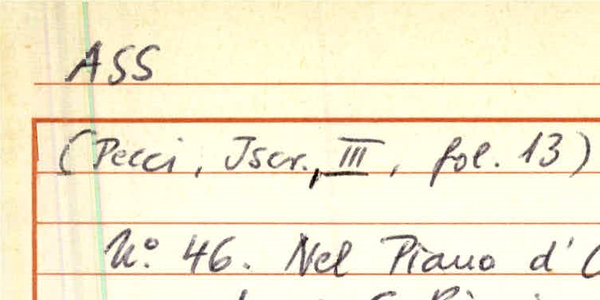 ASS
(Pecci, Iscr., III, fol. 13)
N.º 46. Nel Piano d'